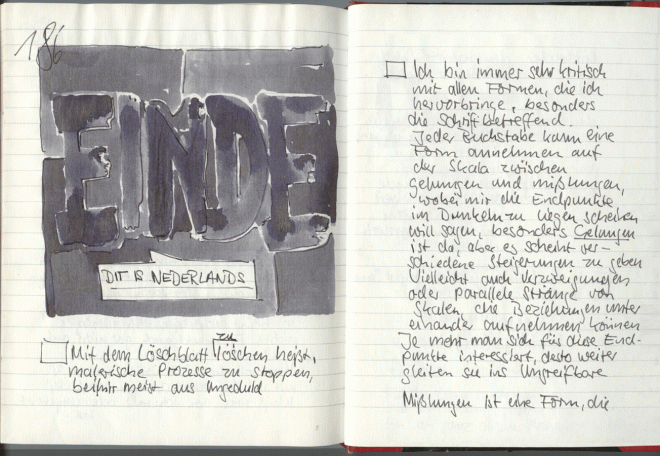 186
EINDE
DIT IS NEDERLANDS
Mit dem Löschblatt zu löschen heißt,
malerische Prozesse zu stoppen,
bei mir meist aus Ungeduld
Ich bin immer sehr kritisch
mit allen Formen, die ich
hervorbringe, besonders
die Schrift betreffend.
Jeder Buchstabe kann eine
Form annehmen auf
der Skala zwischen
gelungen und mißlungen,
wobei mir die Endpunkte
im Dunkeln zu liegen scheinen
will sagen, besonders Gelungen
ist da, aber es scheint ver-
schiedene Steigerungen zu geben
Vielleicht auch Verzweigungen
oder parallele Stränge von
Skalen, die Beziehungen unter
einander aufnehmen können
Je mehr man sich für diese End-
punkte interessiert, desto weiter
gleiten sie ins Ungreifbare
Mißlungen ist eine Form, die